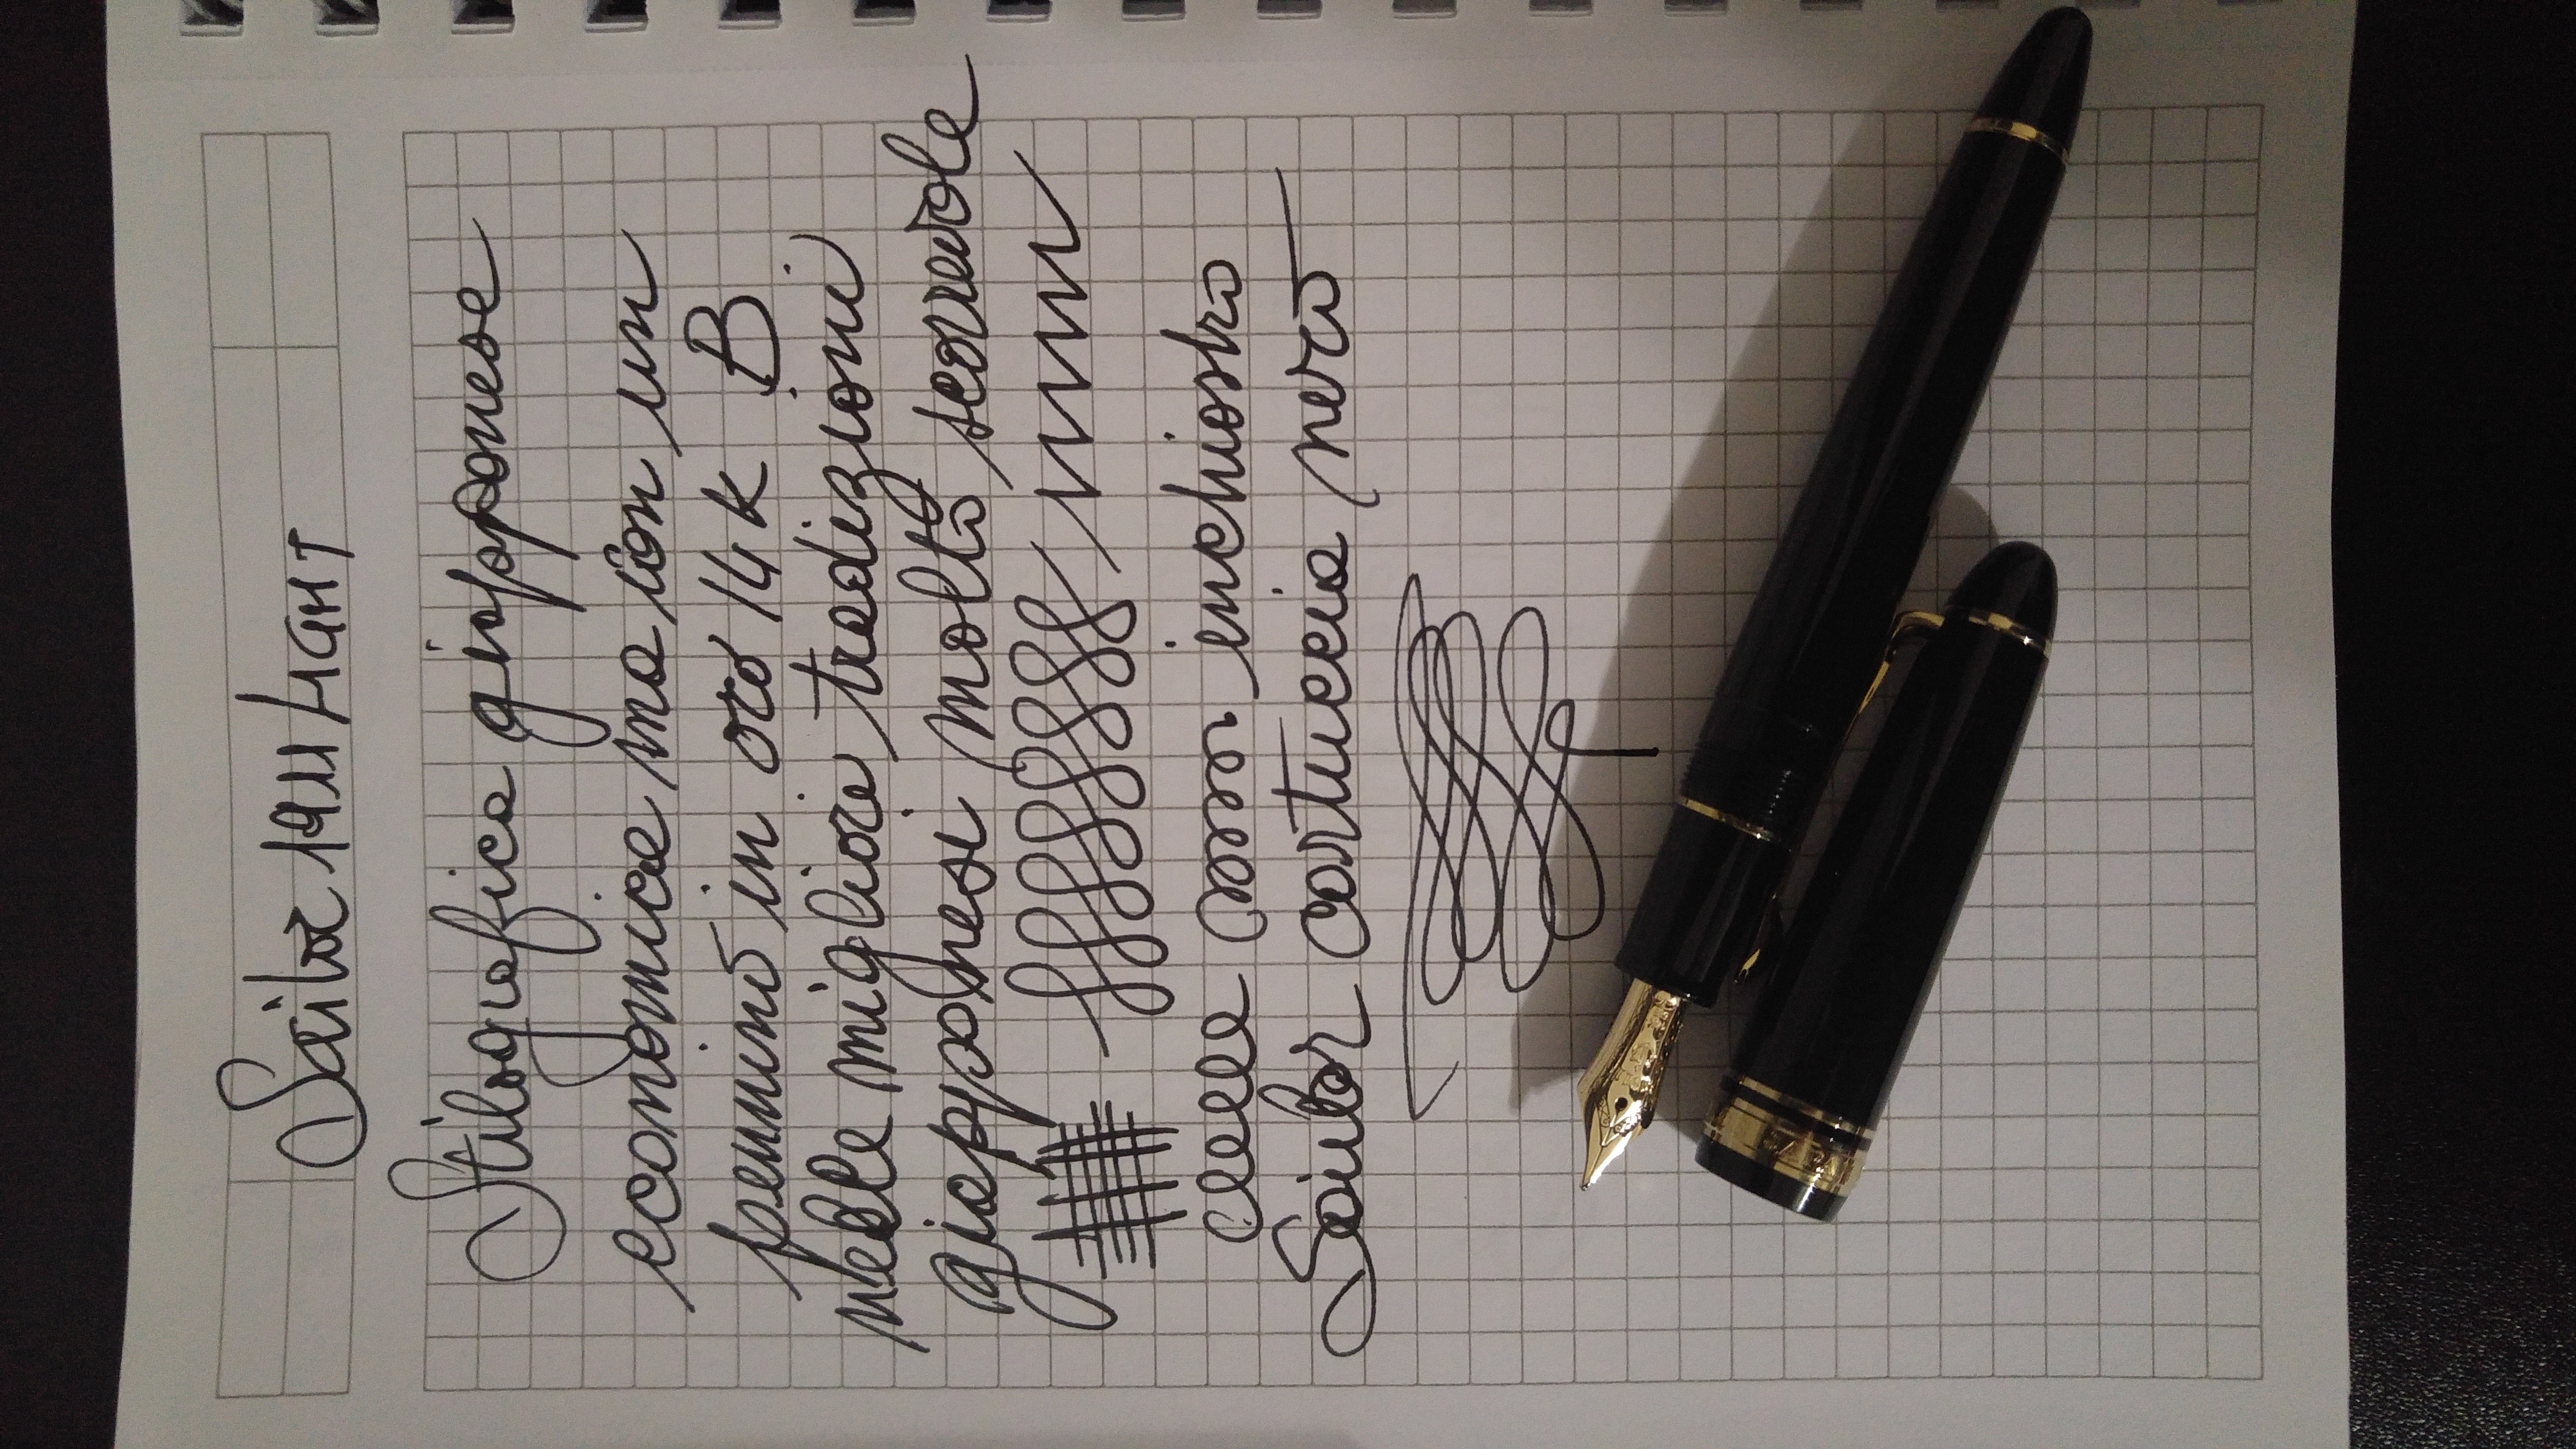 Sailor 1911 LIGHT
Stilografica giapponese
economica ma con un
pennino in oro 14 k B
nelle migliori tradizioni
giapponesi molto scorrevole
con inchiostro
Sailor cartuccia nero